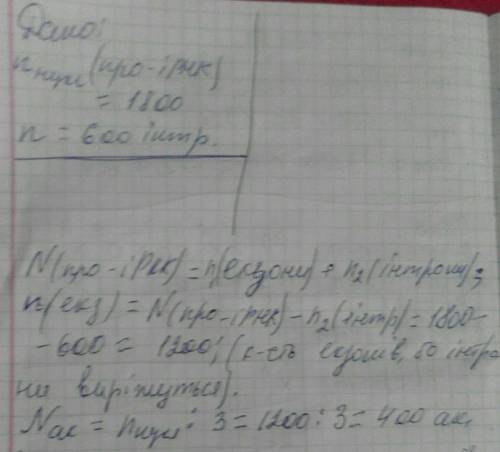 Дано:
n нукл (про-іРНК)
= 1800
n = 600 інтр.
N(про-іРНК) = n(екзони) + n₂(інтрони);
n(екз) = N(про-іРНК) - n₂(інтр) = 1800-
-600 = 1200; (к-сть екзонів, бо інтро
ни виріжуться).
Nак = nнукл : 3 = 1200 : 3 = 400 ак.